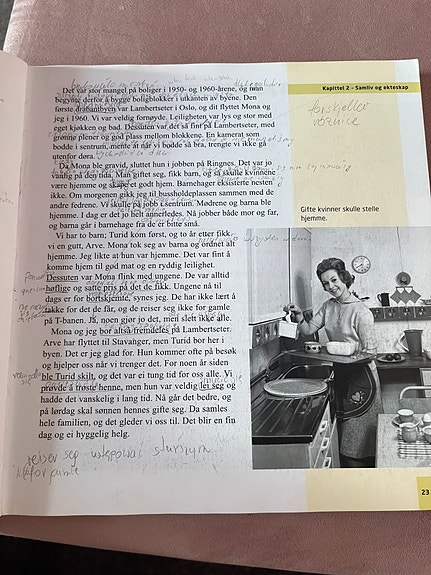 Kapittel 2 – Samliv og ekteskap
Det var stor mangel på boliger i 1950- og 1960-årene, og man
begynte derfor å bygge boligblokker i utkanten av byene. Den
første drabantbyen var Lambertseter i Oslo, og dit flyttet Mona og
jeg i 1960. Vi var veldig fornøyde. Leiligheten var lys og stor med
eget kjøkken og bad. Dessuten var det så fint på Lambertseter, med
grønne plener og god plass mellom blokkene. En kamerat som
bodde i sentrum, mente at når vi bodde så bra, trengte vi ikke gå
utenfor døra.
Da Mona ble gravid, sluttet hun i jobben på Ringnes. Det var jo
vanlig på den tida. Man giftet seg, fikk barn, og så skulle kvinnene
være hjemme og skape et godt hjem. Barnehager eksisterte nesten
ikke. Om morgenen gikk jeg til bussholdeplassen sammen med de
andre fedrene. Vi skulle på jobb i sentrum. Mødrene og barna ble
hjemme. I dag er det jo helt annerledes. Nå jobber både mor og far,
og barna går i barnehage fra de er bitte små.
Vi har to barn; Turid kom først, og to år etter fikk
vi en gutt, Arve. Mona tok seg av barna og ordnet alt
hjemme. Jeg likte at hun var hjemme. Det var fint å
komme hjem til god mat og en ryddig leilighet.
Dessuten var Mona flink med ungene. De var alltid
høflige og satte pris på det de fikk. Ungene nå til
dags er for bortskjemte, synes jeg. De har ikke lært å
takke for det de får, og de reiser seg ikke for gamle
på T-banen. Ja, noen gjør jo det, men slett ikke alle.
Mona og jeg bor altså fremdeles på Lambertseter.
Arve har flyttet til Stavanger, men Turid bor her i
byen. Det er jeg glad for. Hun kommer ofte på besøk
og hjelper oss når vi trenger det. For noen år siden
ble Turid skilt, og det var ei tung tid for oss alle. Vi
prøvde å trøste henne, men hun var veldig lei seg og
hadde det vanskelig i lang tid. Nå går det bedre, og
på lørdag skal sønnen hennes gifte seg. Da samles
hele familien, og det gleder vi oss til. Det blir en fin
dag og ei hyggelig helg.
forskjeller
różnice
Gifte kvinner skulle stelle
hjemme.
reiser seg
23